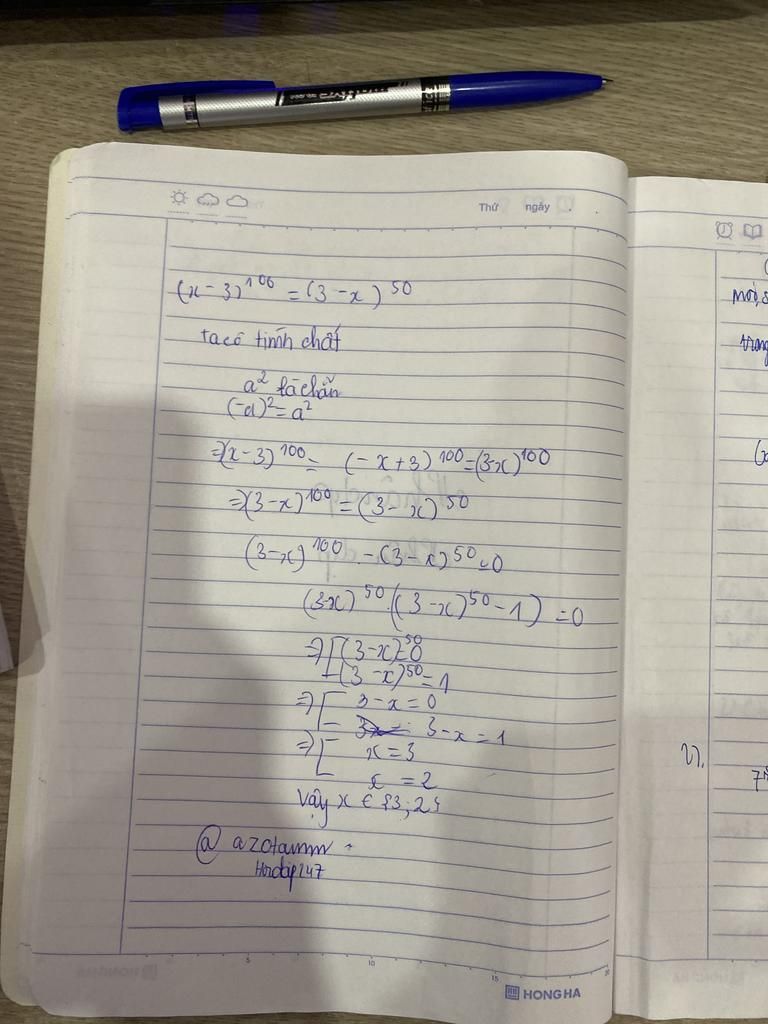 Thứ ngày
(x-3)^100 = (3-x)^50
ta có tính chất
a^2 là chẵn
(-a)^2 = a^2
=> (x-3)^100 = (-x+3)^100 = (3-x)^100
=> (3-x)^100 = (3-x)^50
(3-x)^100 - (3-x)^50 = 0
(3-x)^50 . ((3-x)^50 - 1) = 0
=> [ (3-x)^50 = 0
(3-x)^50 = 1
=> [ 3-x = 0
3-x = 1
=> [ x = 3
x = 2
Vậy x ∈ {3; 2}
@ azotamm
Hoidap247
5 10 15
HONG HA